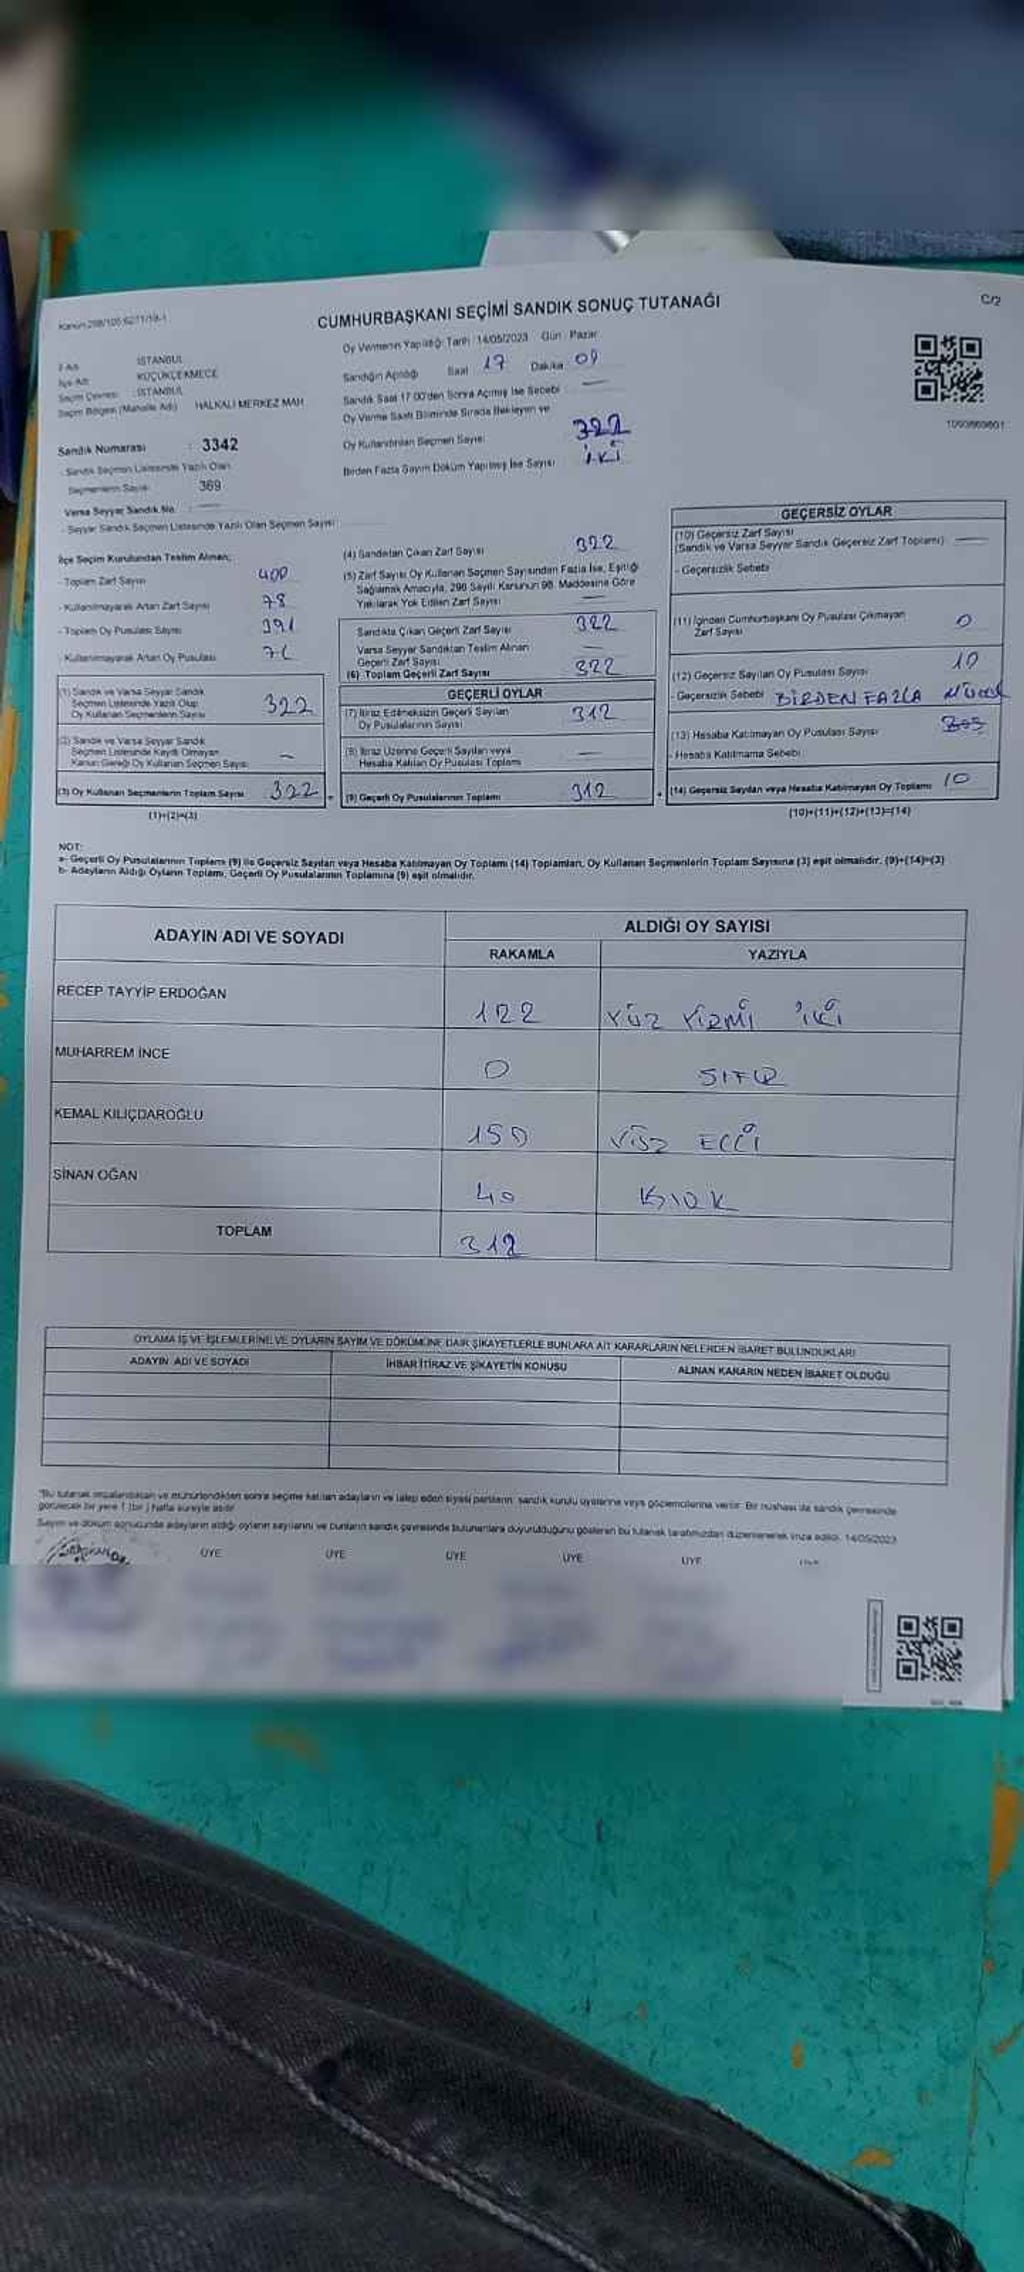 CUMHURBAŞKANI SEÇİMİ SANDIK SONUÇ TUTANAĞI
C/2
Oy Vermenin Yapıldığı Tarih 14/05/2023 Gün : Pazar
İl Adı : İSTANBUL
İlçe Adı : KÜÇÜKÇEKMECE
Seçim Çevresi : İSTANBUL
Seçim Bölgesi (Mahalle Adı) HALKALI MERKEZ MAH.
Sandığın Açıldığı Saat 17 Dakika 09
Sandık Saat 17.00'den Sonra Açılmış İse Sebebi —
Oy Verme Saati Bitiminde Sırada Bekleyen ve
Oy Kullandırılan Seçmen Sayısı 322
Birden Fazla Sayım Döküm Yapılmış İse Sayısı İKİ
Sandık Numarası : 3342
- Sandık Seçmen Listesinde Yazılı Olan
Seçmenlerin Sayısı 369
Varsa Seyyar Sandık No
- Seyyar Sandık Seçmen Listesinde Yazılı Olan Seçmen Sayısı
İlçe Seçim Kurulundan Teslim Alınan;
- Toplam Zarf Sayısı 400
- Kullanılmayarak Artan Zarf Sayısı 78
- Toplam Oy Pusulası Sayısı 391
- Kullanılmayarak Artan Oy Pusulası
(1) Sandık ve Varsa Seyyar Sandık
Seçmen Listesinde Yazılı Olup
Oy Kullanan Seçmenlerin Sayısı 322
(2) Sandık ve Varsa Seyyar Sandık
Seçmen Listesinde Kaydı Olmayan
Kanun Gereği Oy Kullanan Seçmen Sayısı —
(3) Oy Kullanan Seçmenlerin Toplam Sayısı 322
(1)+(2)=(3)
(4) Sandıktan Çıkan Zarf Sayısı 322
(5) Zarf Sayısı Oy Kullanan Seçmen Sayısından Fazla İse, Eşitliği
Sağlamak Amacıyla, 298 Sayılı Kanunun 98. Maddesine Göre
Yakılarak Yok Edilen Zarf Sayısı —
Sandıkta Çıkan Geçerli Zarf Sayısı 322
Varsa Seyyar Sandıktan Teslim Alınan
Geçerli Zarf Sayısı —
(6) Toplam Geçerli Zarf Sayısı 322
GEÇERLİ OYLAR
(7) İtiraz Edilmeksizin Geçerli Sayılan
Oy Pusulalarının Sayısı 312
(8) İtiraz Üzerine Geçerli Sayılan veya
Hesaba Katılan Oy Pusulası Toplamı —
(9) Geçerli Oy Pusulalarının Toplamı 312
GEÇERSİZ OYLAR
(10) Geçersiz Zarf Sayısı
(Sandık ve Varsa Seyyar Sandık Geçersiz Zarf Toplamı) —
- Geçersizlik Sebebi
(11) İçinden Cumhurbaşkanı Oy Pusulası Çıkmayan
Zarf Sayısı 0
(12) Geçersiz Sayılan Oy Pusulası Sayısı 10
- Geçersizlik Sebebi BİRDEN FAZLA
(13) Hesaba Katılmayan Oy Pusulası Sayısı
- Hesaba Katılmama Sebebi
(14) Geçersiz Sayılan veya Hesaba Katılmayan Oy Toplamı 10
(10)+(11)+(12)+(13)=(14)
NOT:
a- Geçerli Oy Pusulalarının Toplamı (9) ile Geçersiz Sayılan veya Hesaba Katılmayan Oy Toplamı (14) Toplamları, Oy Kullanan Seçmenlerin Toplam Sayısına (3) eşit olmalıdır. (9)+(14)=(3)
b- Adayların Aldığı Oyların Toplamı, Geçerli Oy Pusulalarının Toplamına (9) eşit olmalıdır.
ADAYIN ADI VE SOYADI ALDIĞI OY SAYISI
RAKAMLA YAZIYLA
RECEP TAYYİP ERDOĞAN 122 YÜZ YİRMİ İKİ
MUHARREM İNCE 0 SIFIR
KEMAL KILIÇDAROĞLU 150 YÜZ ELLİ
SİNAN OĞAN 40 KIRK
TOPLAM 312
OYLAMA İŞ VE İŞLEMLERİNE VE OYLARIN SAYIM VE DÖKÜMÜNE DAİR ŞİKAYETLERLE BUNLARA AİT KARARLARIN NELERDEN İBARET BULUNDUKLARI
ADAYIN ADI VE SOYADI İHBAR İTİRAZ VE ŞİKAYETİN KONUSU ALINAN KARARIN NEDEN İBARET OLDUĞU
"Bu tutanak imzalandıktan ve mühürlendikten sonra seçime katılan adayların ve talep eden siyasi partilerin, sandık kurulu üyelerine veya gözlemcilerine verilir. Bir nüshası da sandık çevresinde
görülecek bir yere 1 (bir) hafta süreyle asılır.
Sayım ve döküm sonucunda adayların aldığı oyların sayılarını ve bunların sandık çevresinde bulunanlara duyurulduğunu gösteren bu tutanak tarafımızdan düzenlenerek imza edildi. 14/05/2023
ÜYE ÜYE ÜYE ÜYE ÜYE